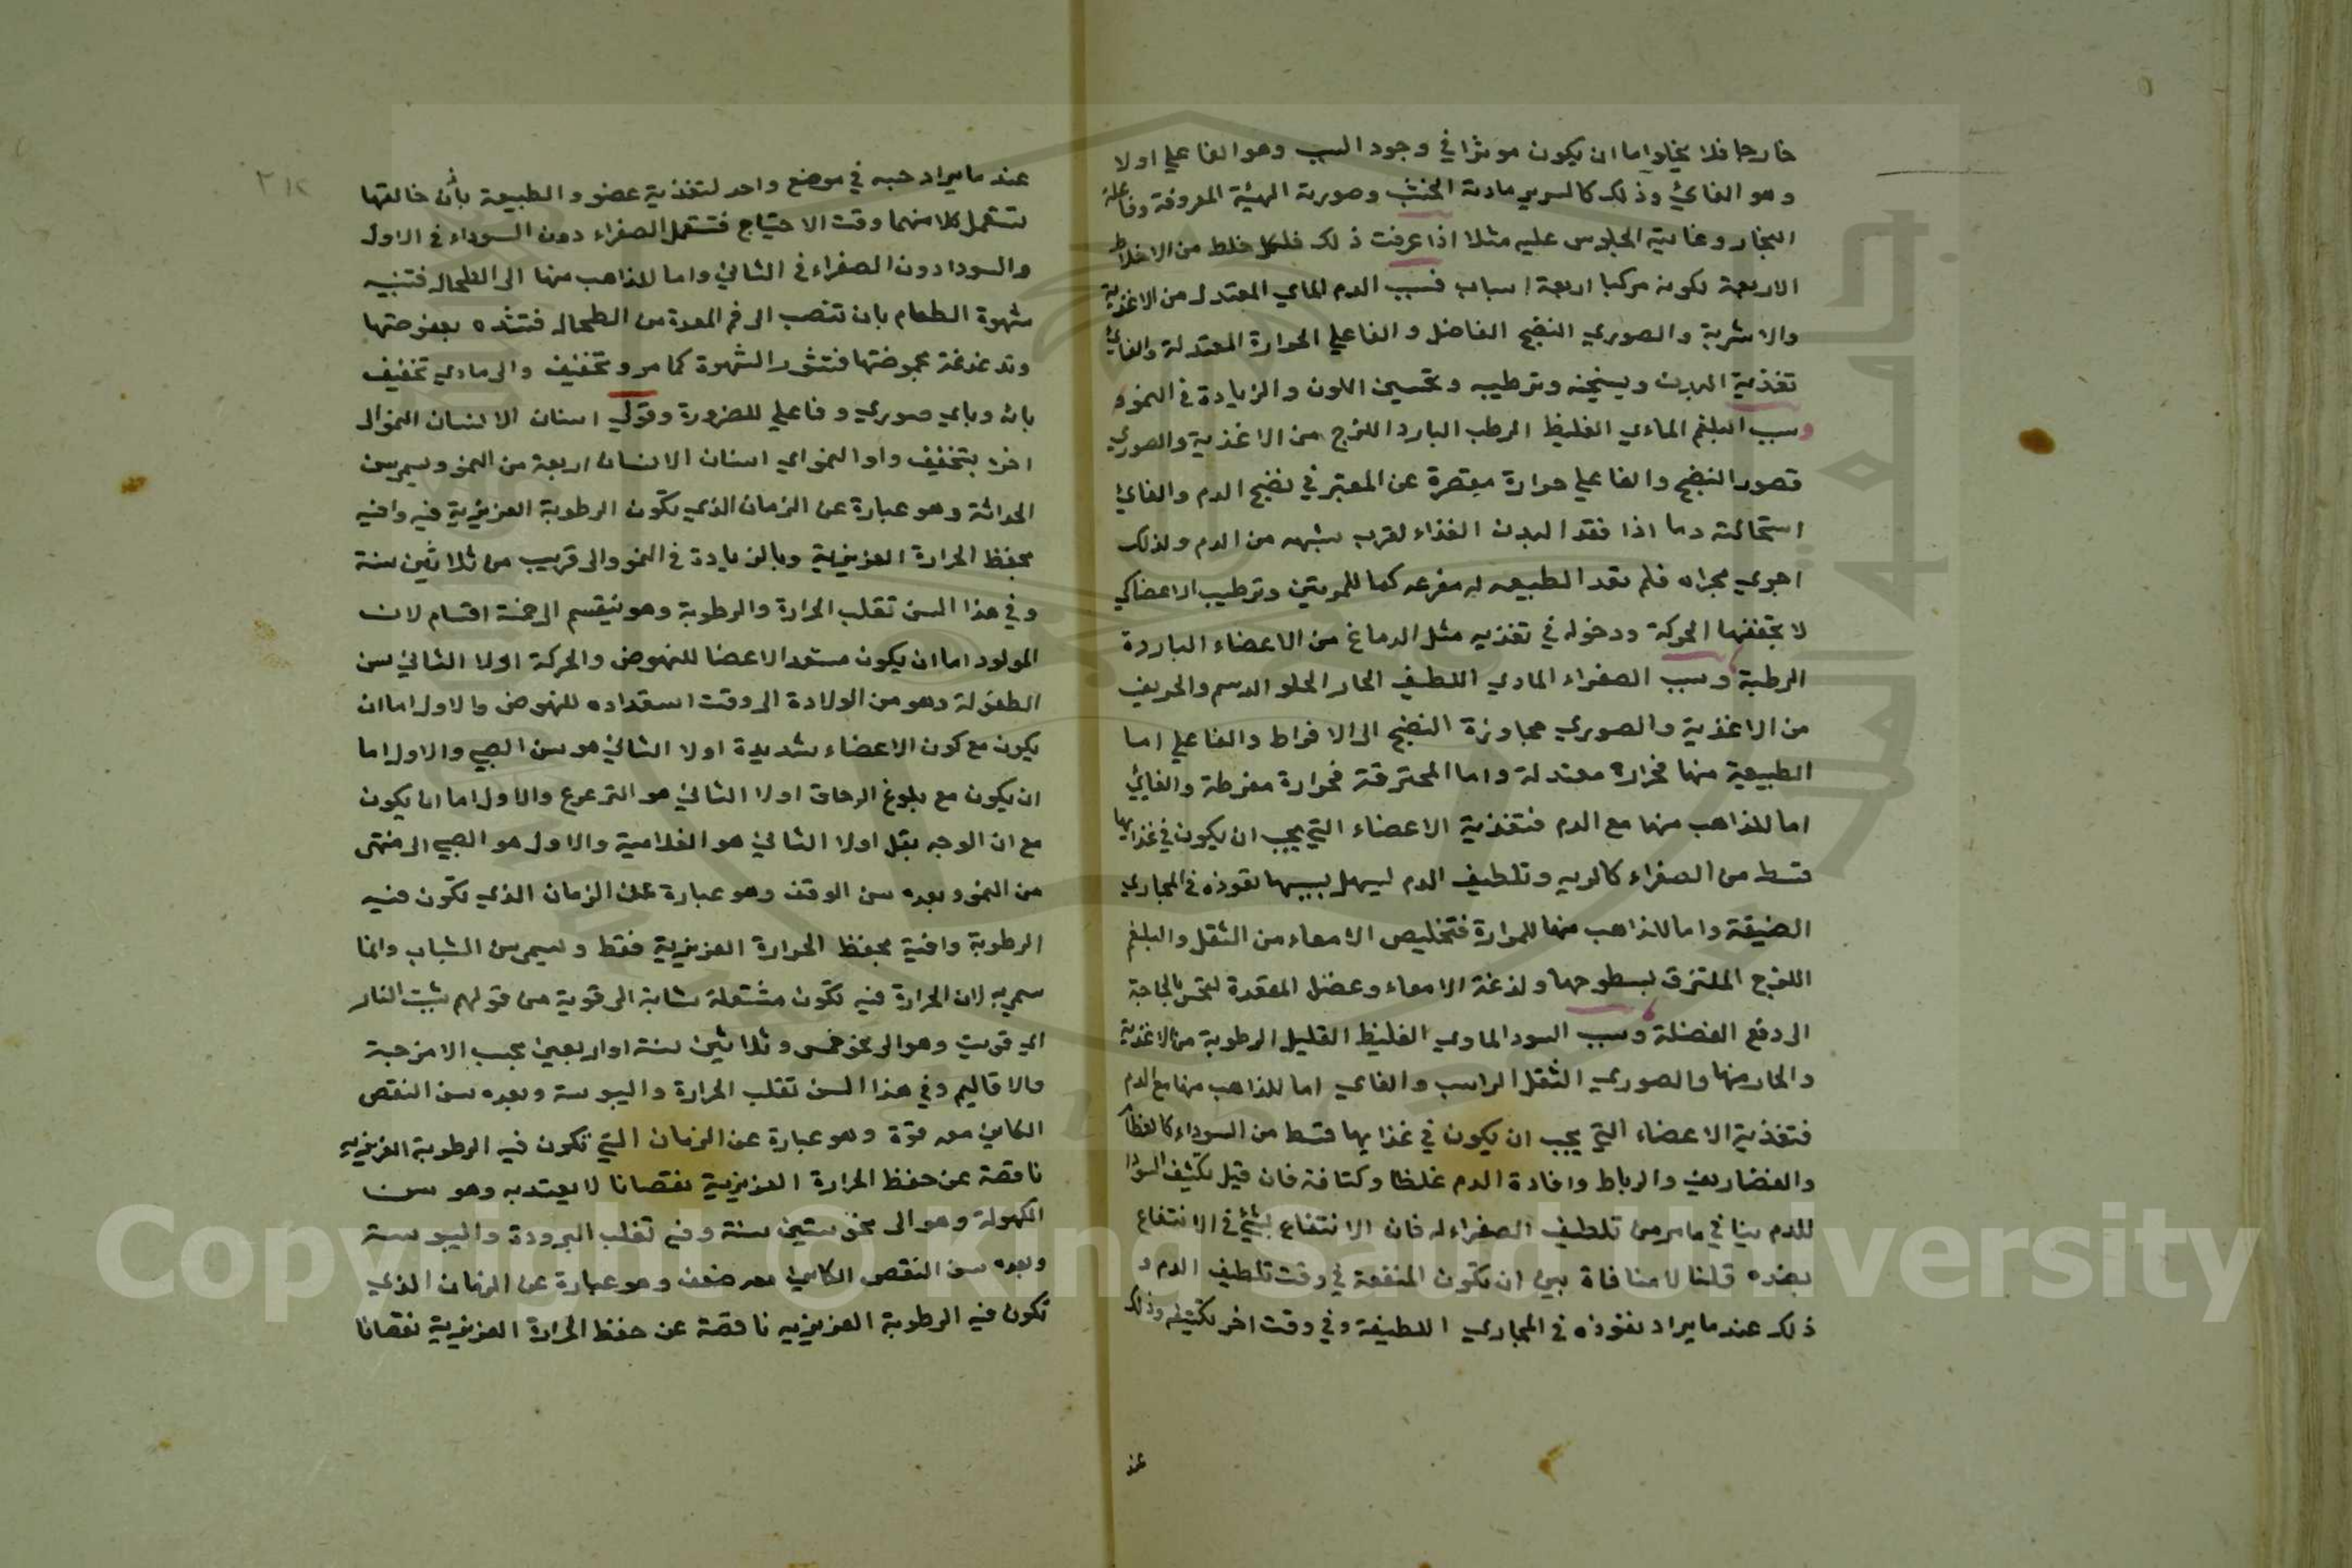 خارجا فلا يخلوا اما ان يكون موثرا في وجود السبب وهو الفاعلي اولا
وهو الغائي وذلك كالسرير مادته الخشب وصورته الهيئة المعروفة وفاعله
النجار وغايته الجلوس عليه مثلا اذا عرفت ذلك فلكل خلط من الاخلاط
الاربعة يكون مركبا اربعة اسباب فسبب الدم المادي المعتدل من الاغذية
والاشربة والصوري النضج الفاضل والفاعلي الحرارة المعتدلة والغائي
تغذية البدن ويسخنه وترطيبه وتحسين اللون والزيادة في النمو
وسبب البلغم المادي الغليظ الرطب البارد اللزج من الاغذية والصوري
قصور النضج والفاعلي حرارة مقصرة عن المعتبر في نضج الدم والغائي
استحالته دما اذا فقد البدن الغذاء لقرب شبهه من الدم ولذلك
اجري مجراه فلم تعد الطبيعه له مفرغه كما للمرتين وترطيب الاعضا كي
لا تجففها الحركة ودخوله في تغذيه مثل الدماغ من الاعضاء الباردة
الرطبة وسبب الصفراء المادي اللطيف الحار الحلو الدسم والحريف
من الاغذية والصوري مجاوزة النضج الى الافراط والفاعلي اما
الطبيعية منها فحرارة معتدلة واما المحترقة فحرارة مفرطة والغائي
اما للذاهب منها مع الدم فتغذية الاعضاء التي يجب ان يكون في غذايها
قسط من الصفراء كالريه وتلطيف الدم ليسهل بسببها نفوذه في المجاري
الضيقة واما للذاهب منها للمرارة فتخليص الامعاء من الثفل والبلغم
اللزج الملتزق بسطوحها ولذغة الامعاء وعضل المقعدة لتحس بالحاجة
الى دفع الفضلة وسبب السودا المادي الغليظ القليل الرطوبة من الاغذية
والحار منها والصوري الثفل الراسب والغاي اما للذاهب منها مع الدم
فتغذية الاعضاء التي يجب ان يكون في غذايها قسط من السوداء كالعظام
والغضاريف والرباط وافادة الدم غلظا وكثافة فان قيل تكثيف السودا
للدم ينافي ما مر من تلطيف الصفراء له فان الانتفاع بشئ في الانتفاع
بضده قلنا لا منافاة بين ان تكون المنفعة في وقت تلطيف الدم و
ذلك عند ما يراد نفوذه في المجاري اللطيفة وفي وقت اخر تكثيفه وذلك
عند
٢١٢
عند ما يراد حبسه في موضع واحد لتغذية عضو والطبيعة بأذن خالقها
تستعمل كلا منهما وقت الاحتياج فتستعمل الصفراء دون السوداء في الاول
والسودا دون الصفراء في الثاني واما للذاهب منها الى الطحال فتنبيه
شهوة الطعام بان تنصب الى فم المعدة من الطحال فتشده بعفوصتها
وتدغدغه بحموضتها فتثور الشهوة كما مر وتخفيف والى مادي تخفيف
بان وباي صوري وفاعلي للضرورة وقولي اسنان الانسان النمو الى
اخره بتخفيف واو النمو اي اسنان الانسان اربعة سن النمو ويسمى سن
الحداثة وهو عبارة عن الزمان الذي تكون الرطوبة الغريزية فيه وافيه
بحفظ الحرارة الغريزية وبالزيادة في النمو والى قريب من ثلاثين سنة
وفي هذا السن تغلب الحرارة والرطوبة وهو ينقسم الى خمسة اقسام لان
المولود اما ان يكون مستعد الاعضا للنهوض والحركة اولا الثاني سن
الطفولة وهو من الولادة الى وقت استعداده للنهوض والاول اما ان
يكون مع كون الاعضاء شديدة اولا الثاني هو سن الصبي والاول اما
ان يكون مع بلوغ الرهاق اولا الثاني هو الترعرع والاول اما ان يكون
مع ان الوجه بقل اولا الثاني هو الغلامية والاول هو الصبي الى منتهى
من النمو وبعده سن الوقف وهو عبارة عن الزمان الذي تكون فيه
الرطوبة وافية بحفظ الحرارة الغريزية فقط ويسمى سن الشباب وانما
سمي به لان الحرارة فيه تكون مشتعلة شابة اى قوية من قولهم شبت النار
اي قويت وهو الى نحو خمس وثلاثين سنة او اربعين بحسب الامزجة
والاقاليم وفي هذا السن تغلب الحرارة واليبوسة وبعده سن النقص
الكاين معه قوة وهو عبارة عن الزمان التي تكون فيه الرطوبة الغريزيه
ناقصة عن حفظ الحرارة الغريزية نقصانا لا يعتد به وهو سن
الكهولة وهو الى نحو ستين سنة وفيه تغلب البرودة واليبوسة
وبعده سن النقص الكاين معه ضعف وهو عبارة عن الزمان الذي
تكون فيه الرطوبة الغريزيه ناقصة عن حفظ الحرارة الغريزية نقصانا
Copyright © King Saud University